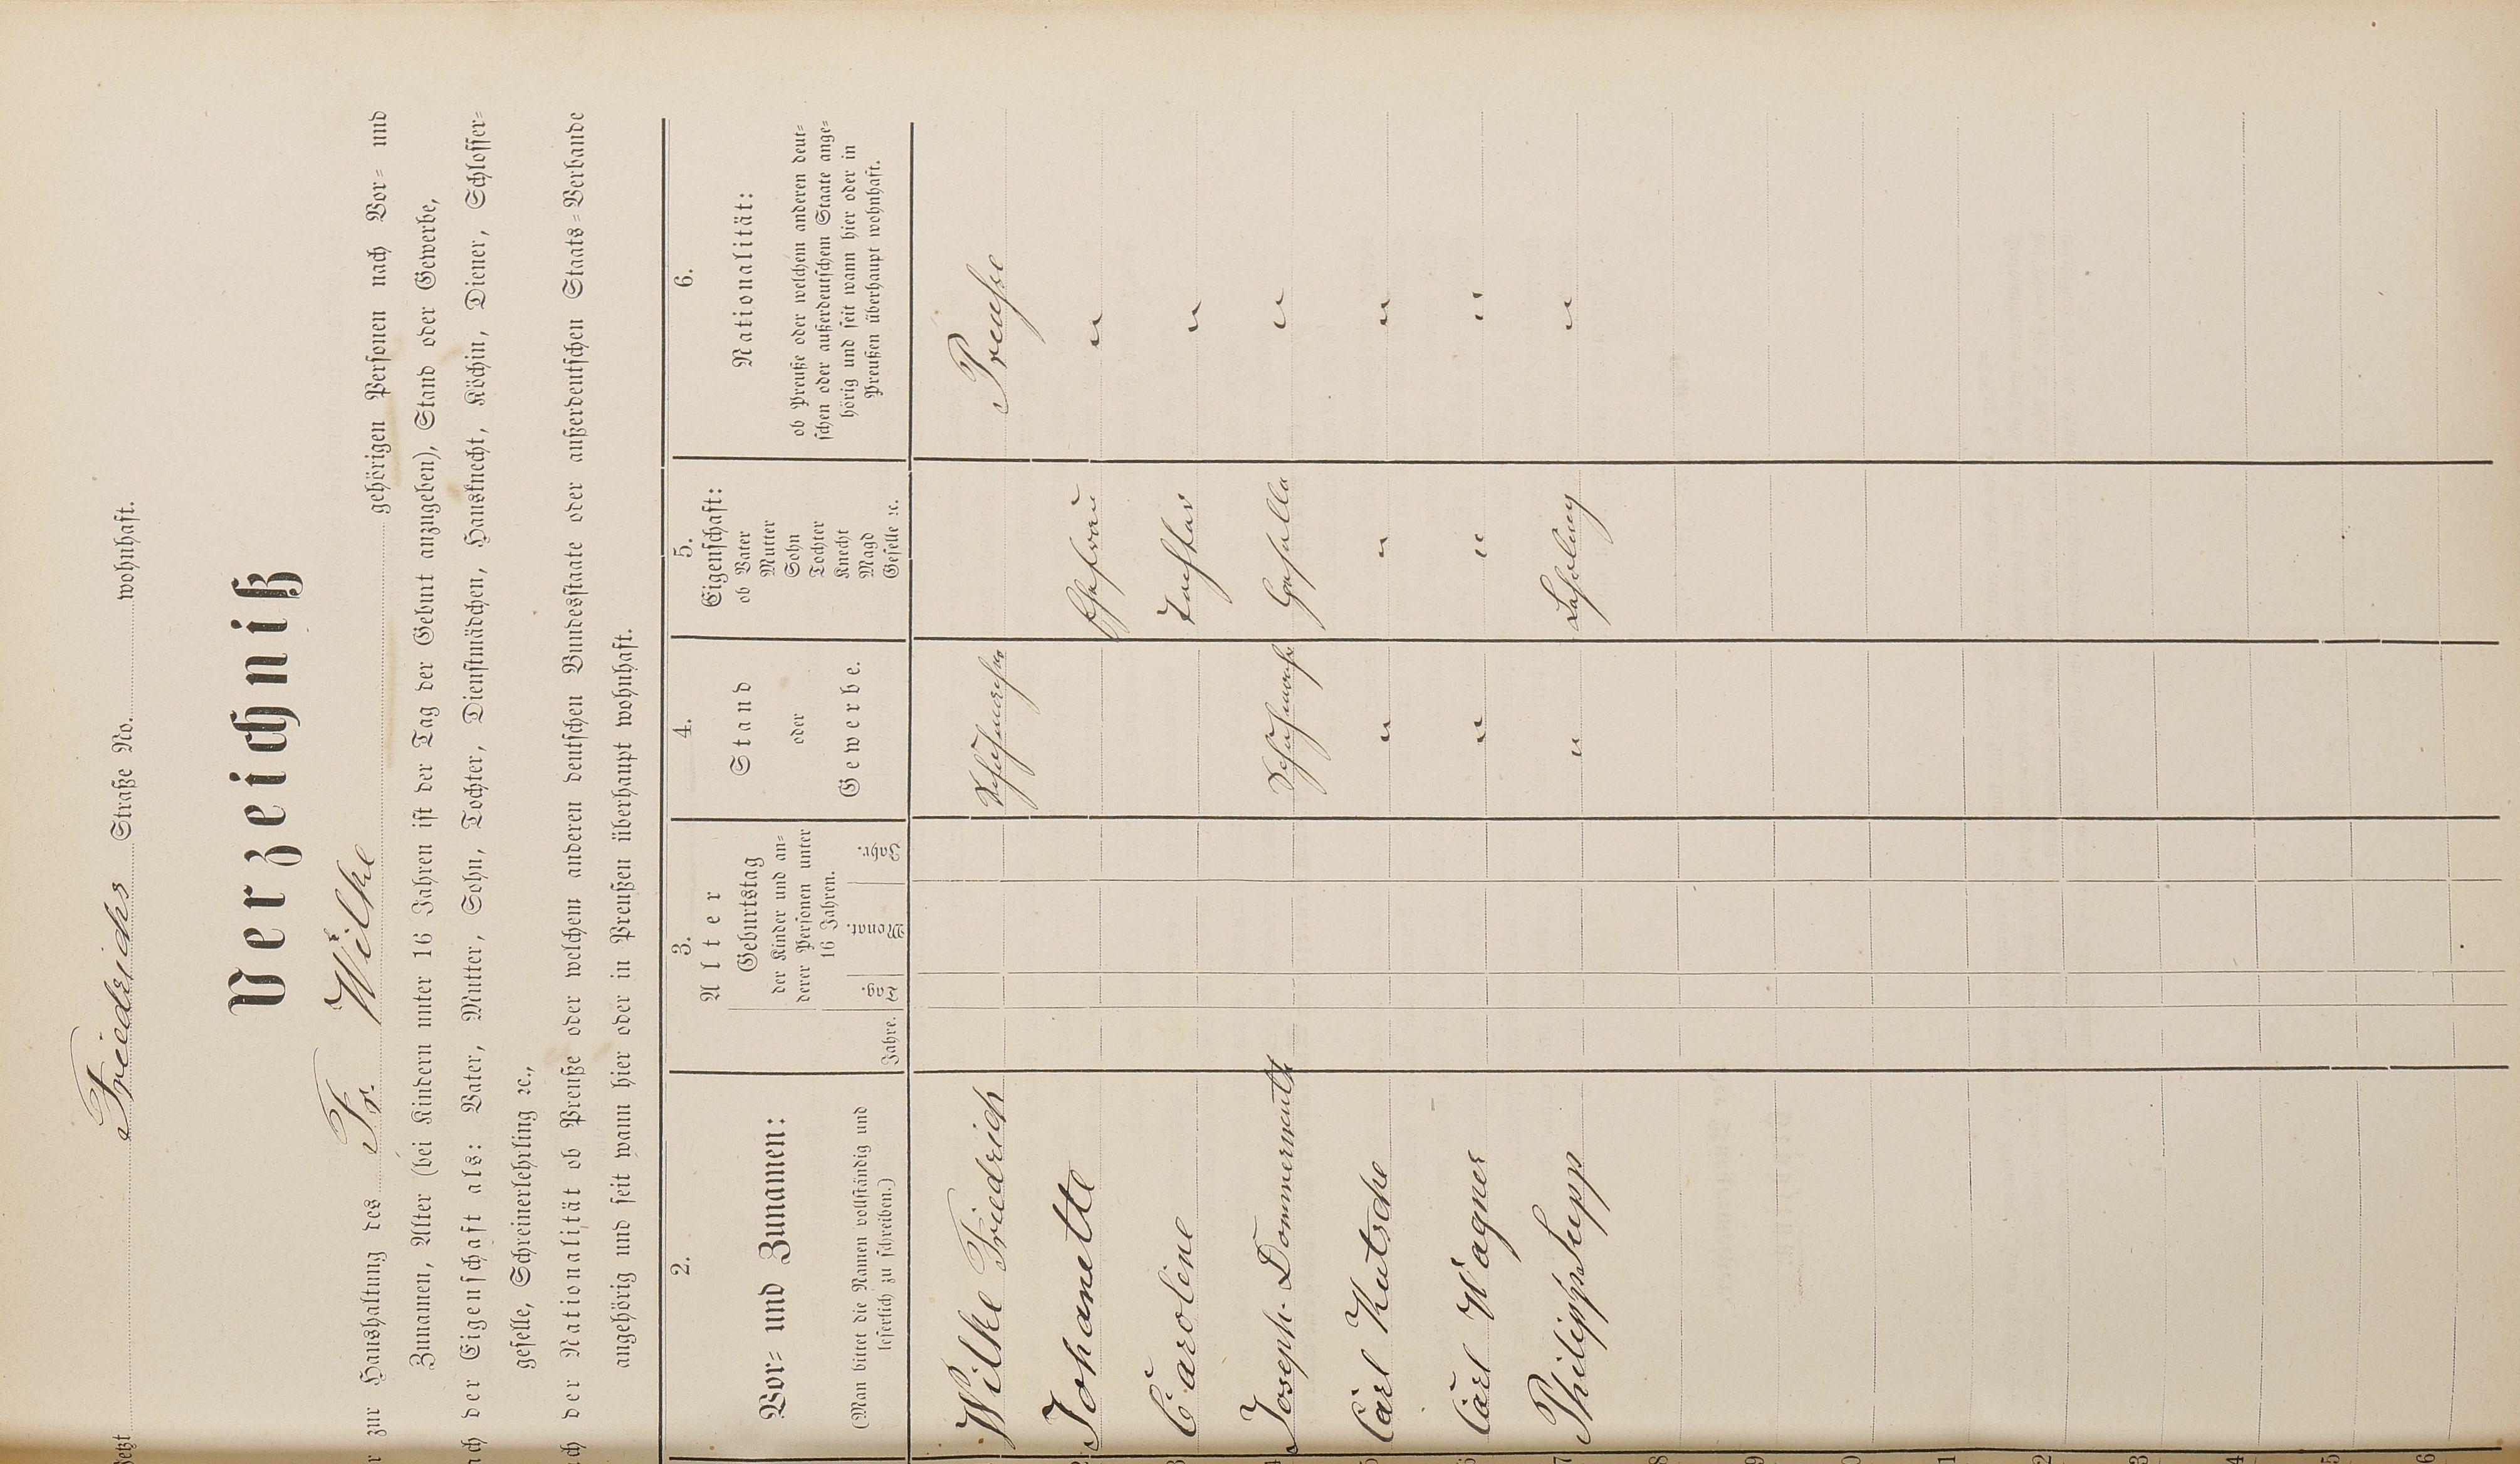 Jetzt Friedrichs Straße No. wohnhaft.
Verzeichniß
r zur Haushaltung des Fr. Wilke gehörigen Personen nach Vor= und
Zunamen, Alter (bei Kindern unter 16 Jahren ist der Tag der Geburt anzugeben), Stand oder Gewerbe,
ach der Eigenschaft als: Vater, Mutter, Sohn, Tochter, Dienstmädchen, Hausknecht, Köchin, Diener, Schlosser=
geselle, Schreinerlehrling ꝛc.,
ch der Nationalität ob Preuße oder welchem anderen deutschen Bundesstaate oder außerdeutschen Staats=Verbande
angehörig und seit wann hier oder in Preußen überhaupt wohnhaft.
2.
Vor= und Zunamen:
(Man bittet die Namen vollständig und
leserlich zu schreiben.)
3.
Alter
Geburtstag
der Kinder und an=
derer Personen unter
16 Jahren.
Jahre. Tag. Monat. Jahr.
4.
Stand
oder
Gewerbe.
5.
Eigenschaft:
ob Vater
Mutter
Sohn
Tochter
Knecht
Magd
Geselle ꝛc.
6.
Nationalität:
ob Preuße oder welchen anderen deut=
schen oder außerdeutschem Staate ange=
hörig und seit wann hier oder in
Preußen überhaupt wohnhaft.
Wilke Friedrich Schuhmacher Preuße
2 Johanette Ehefrau "
3 Caroline Tochter "
4 Joseph Dommermuth Schuhmacher Geselle "
5 Carl Kutsche " " "
6 Carl Wagner " " "
7 Philipp Supp " Lehrling "
8
9
0
1
2
3
4
5
6